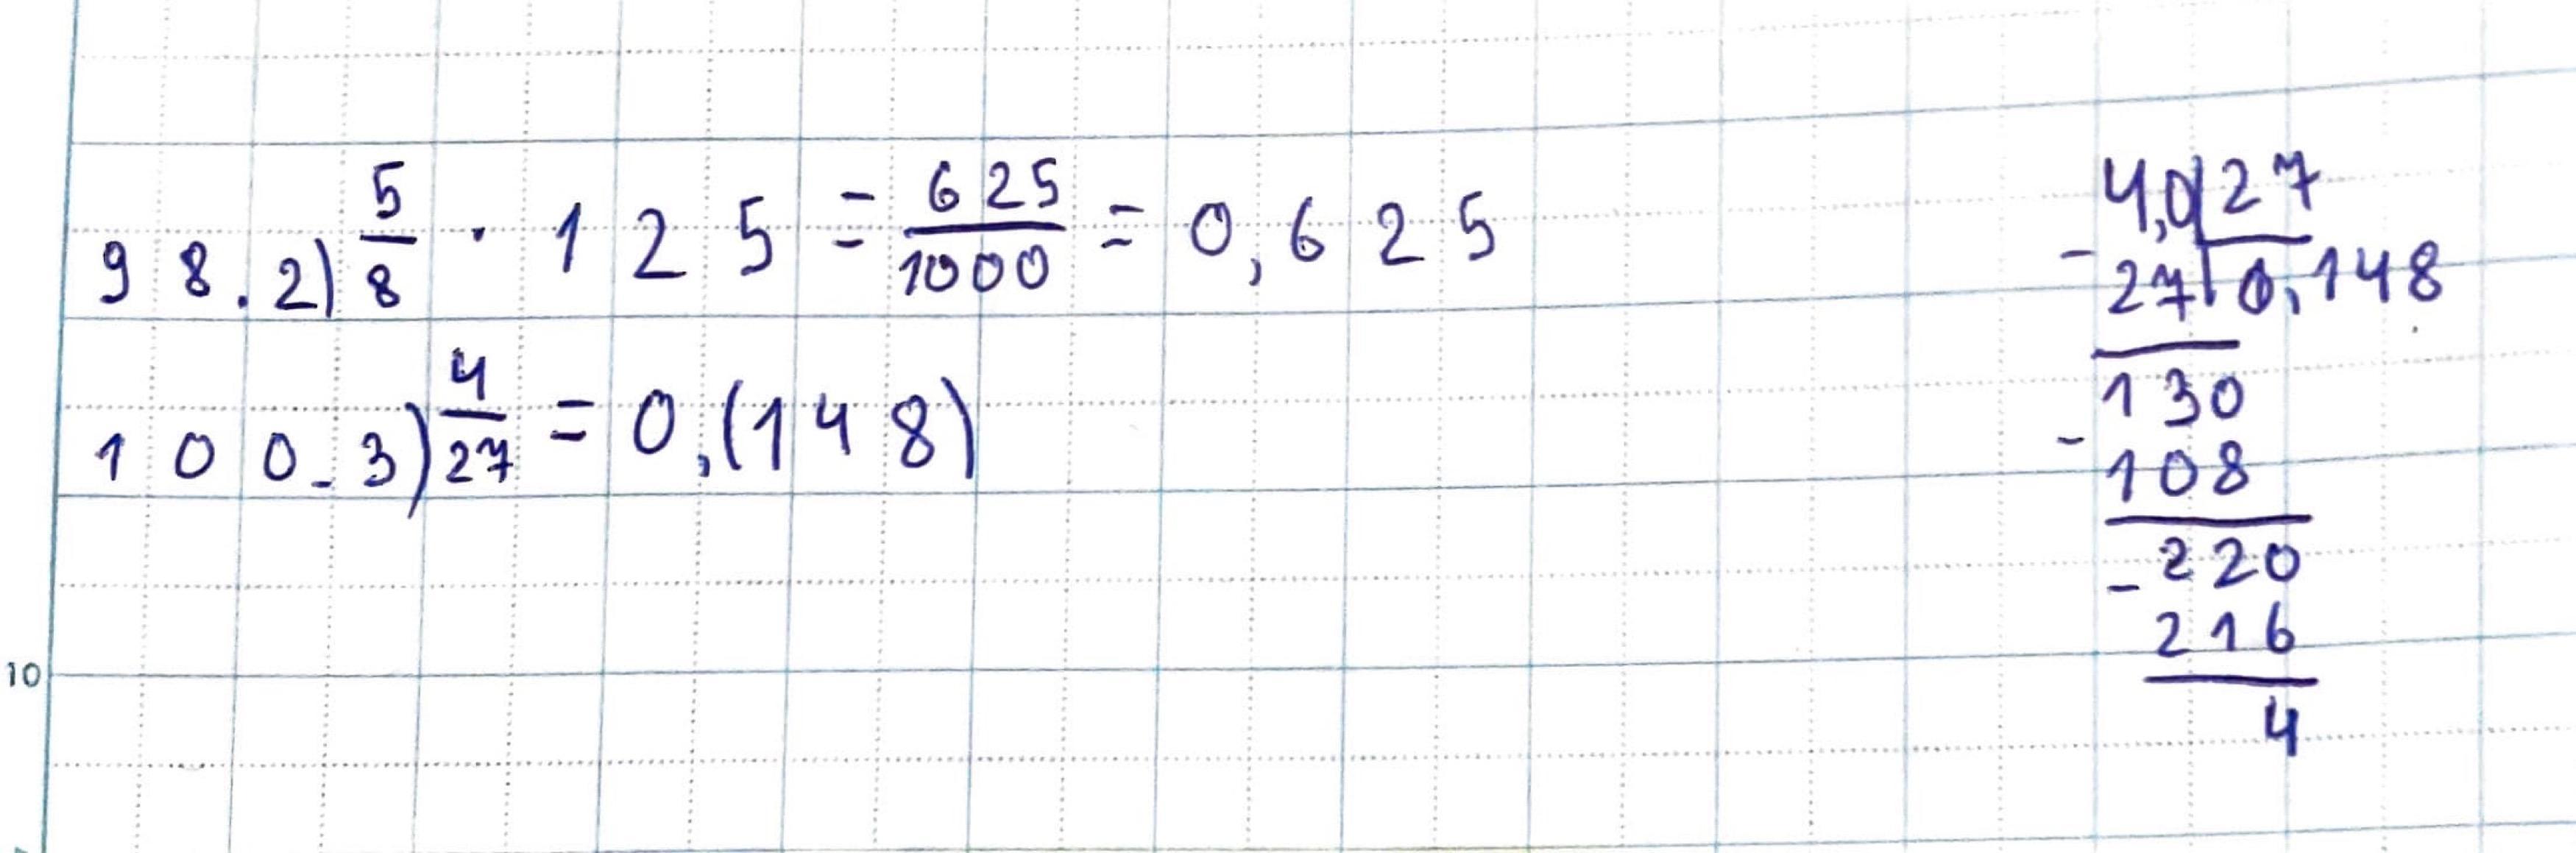 98.2) 5/8 · 125 = 625/1000 = 0,625
100.3) 4/27 = 0,(148)
4,0 | 27
- 27 | 0,148
130
- 108
- 220
216
4
10